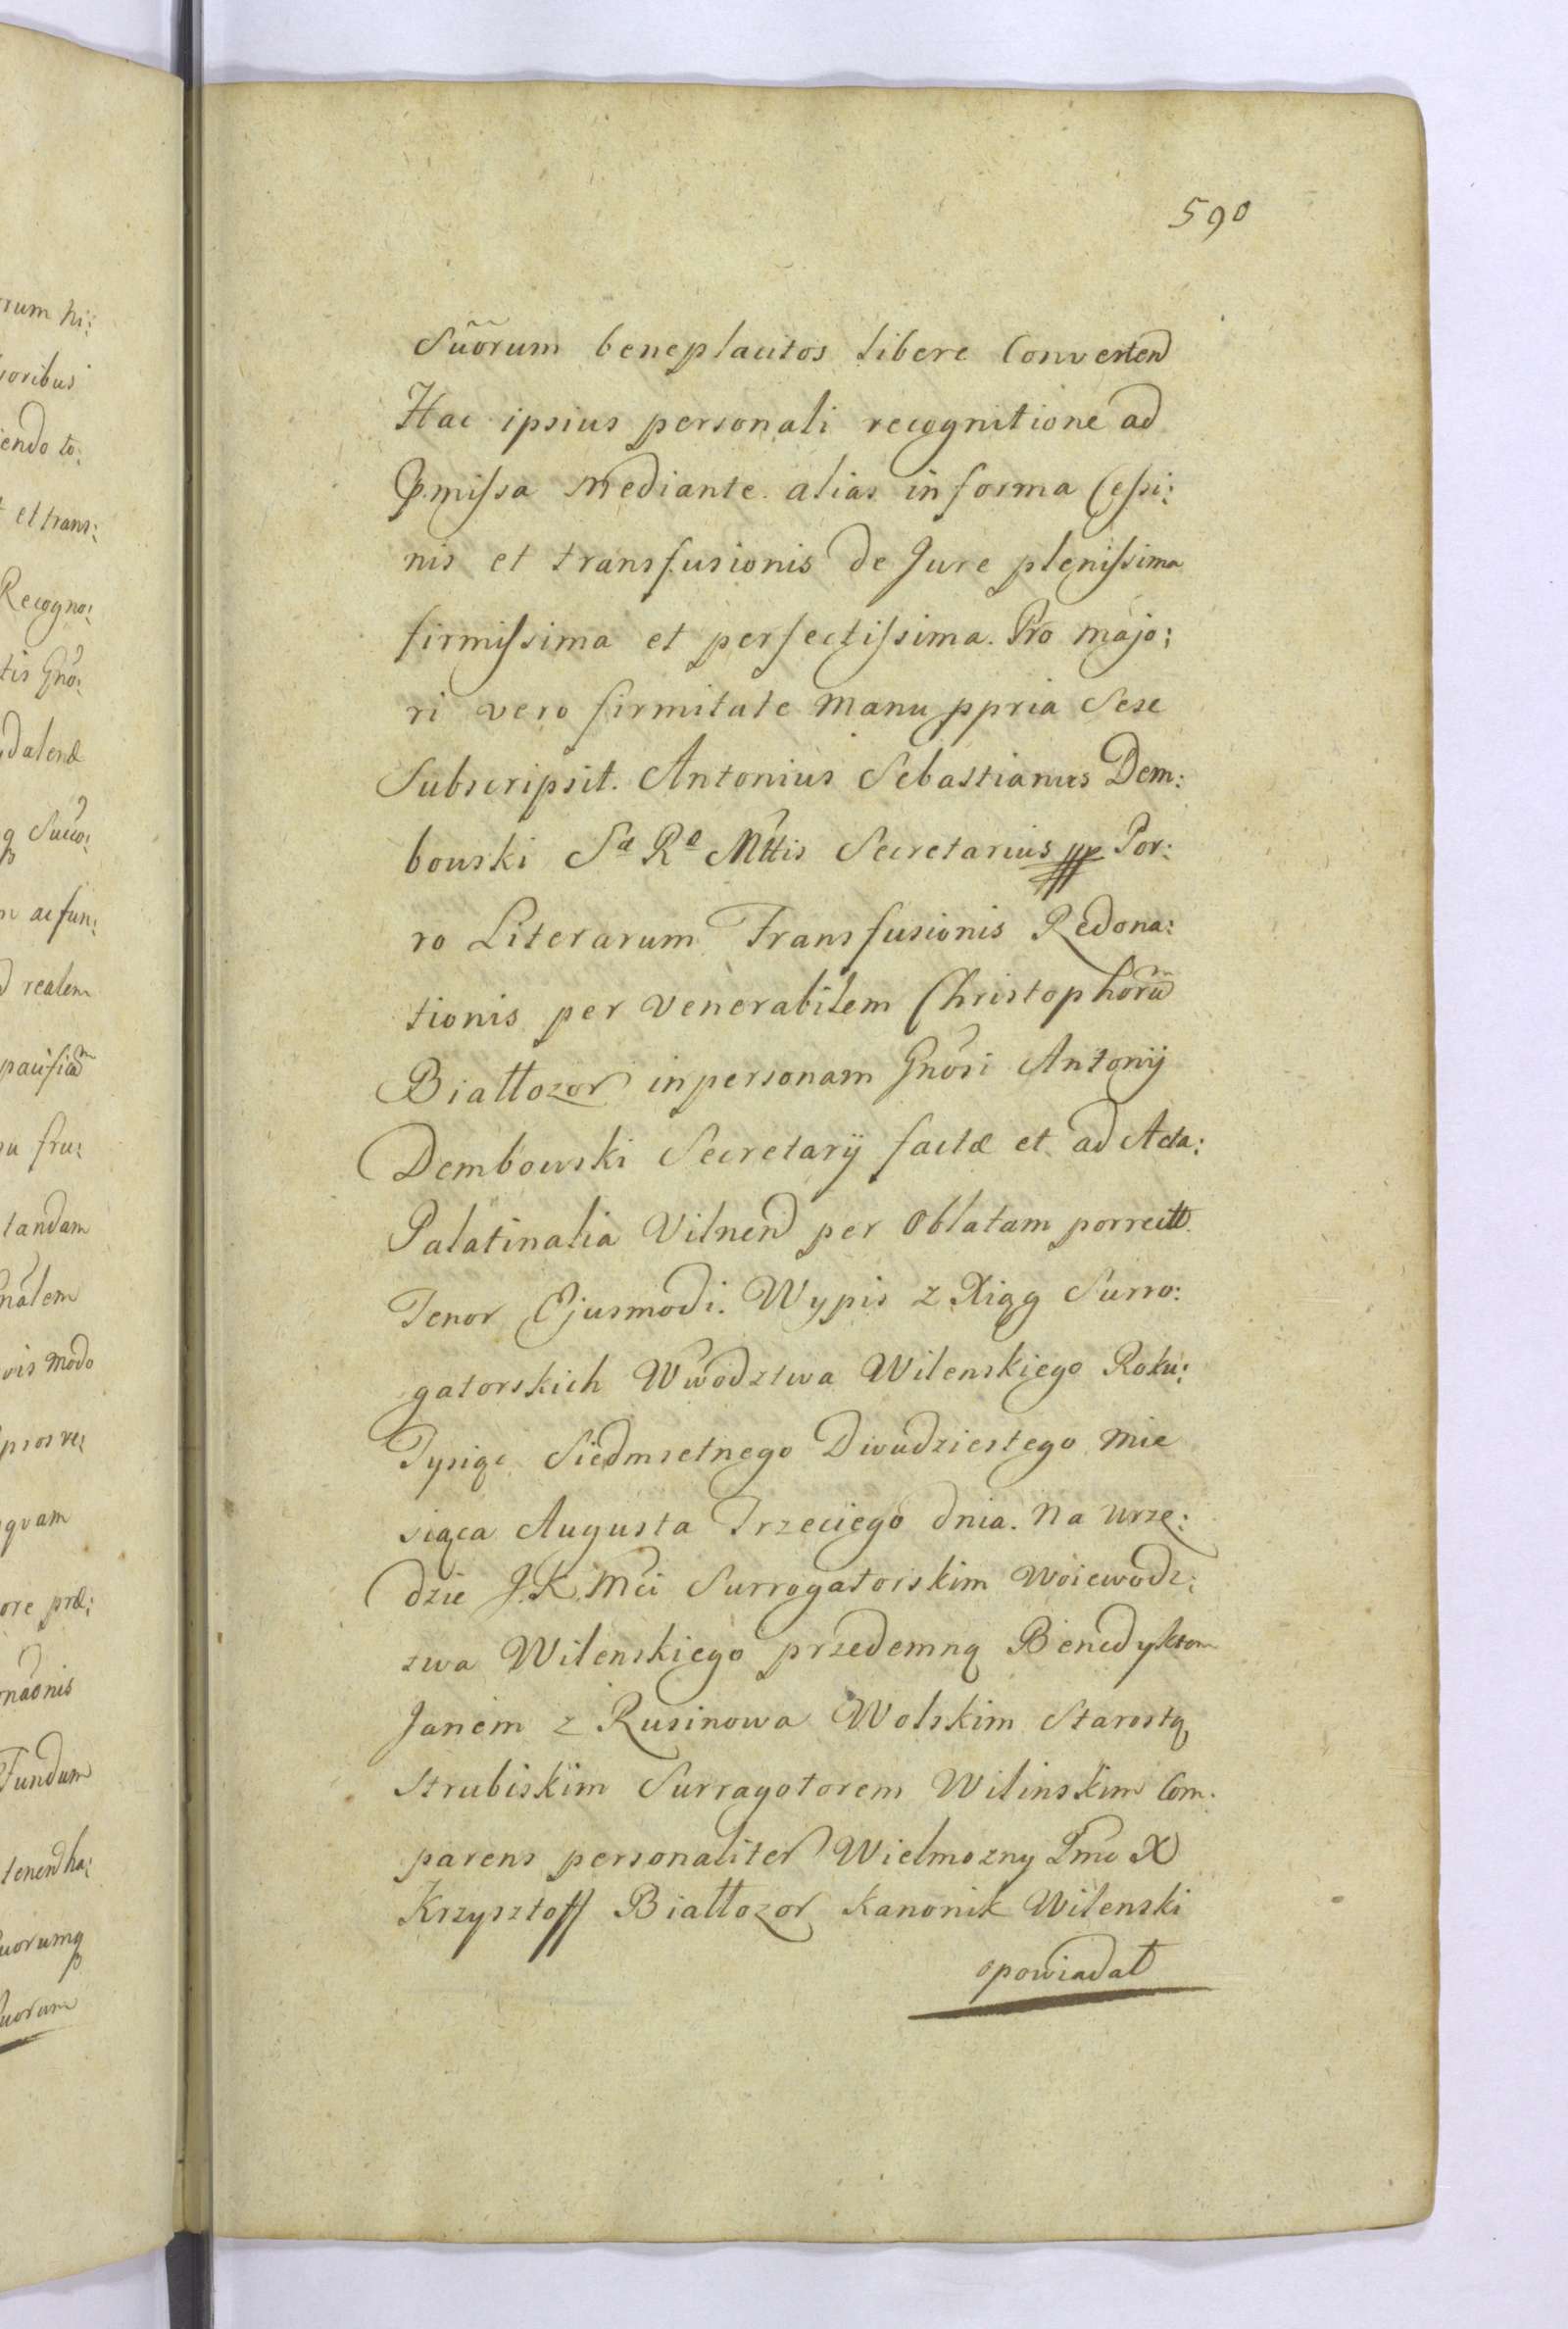 590
Suõrum beneplacitos libere Converten
Hac ipsius personali recognitione ad
Pmissa mediante alias in forma Cessi:
nis et transfusionis de Jure plenissima
firmissima et perfectissima. Pro majo:
ri vero firmitate manu ppria Sese
Subscripsit. Antonius Sebastianus Dem:
bowski Sa Re Mttis Secretarius Por:
ro Literarum Transfusionis Redona:
tionis per Venerabilem Christophorũ
Białłozor in personam Gnosi Antonij
Dembowski Secretarij factæ et ad Acta:
Palatinalia Vilnen per Oblatam porrectt
Tenor Ejusmodi. Wypis z Xiąg Surro:
gatorskich Wwodztwa Wilenskiego Roku:
Tysiąc Siedmsetnego Dwudziestego mie
siąca Augusta Trzeciego dnia. Na urzę:
dzie J.K. Mci Surrogatorskim Woiewodz:
twa Wilenskiego przedemną Benedyktem
Janem z Rusinowa Wolskim Starostą
Strubiskim Surragotorem Wilinskim Com.
parens personaliter Wielmozny Jmc X
Krzysztoff Białłozor Kanonik Wilenski
opowiadał
rum hi:
soribus
iendo to:
et trans:
Recogno:
tis Gno:
dalenæ
q Succo:
m ac fun:
realem
pacificã
su fru:
tandam
nalem
vis modo
psos ve:
quam
ore præ:
naonis
Fundum
tenend ha:
suorumq
Suorum